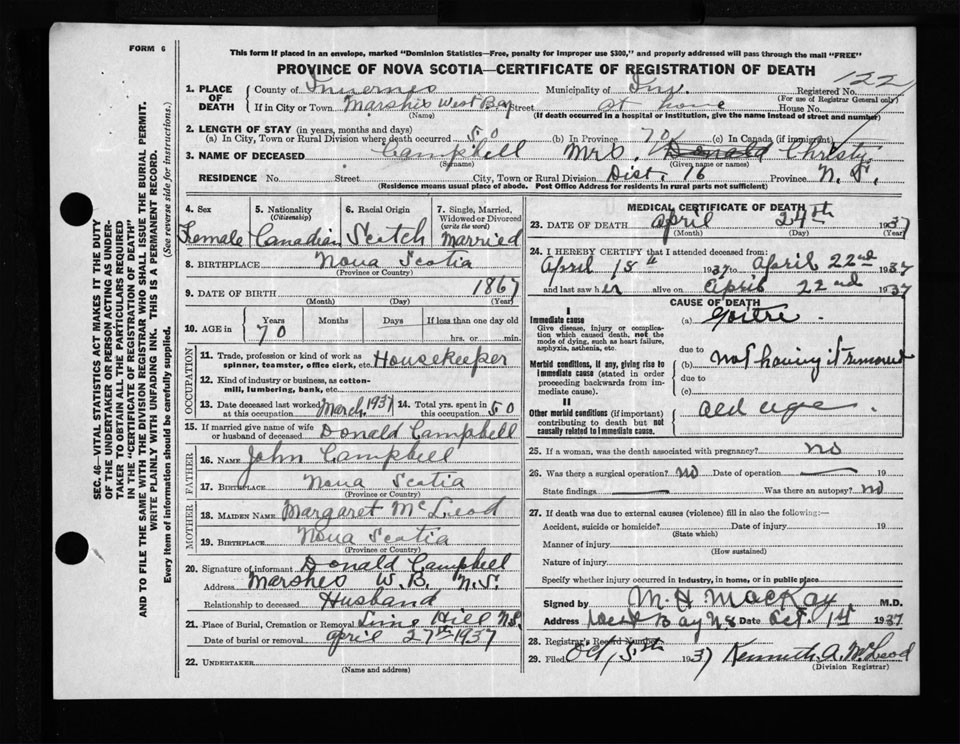 FORM 6
This form if placed in an envelope, marked "Dominion Statistics—Free, penalty for improper use $300," and properly addressed will pass through the mail "FREE"
PROVINCE OF NOVA SCOTIA—CERTIFICATE OF REGISTRATION OF DEATH
122
SEC. 46—VITAL STATISTICS ACT MAKES IT THE DUTY
OF THE UNDERTAKER OR PERSON ACTING AS UNDER-
TAKER TO OBTAIN ALL THE PARTICULARS REQUIRED
IN THE "CERTIFICATE OF REGISTRATION OF DEATH"
AND TO FILE THE SAME WITH THE DIVISION REGISTRAR WHO SHALL ISSUE THE BURIAL PERMIT.
WRITE PLAINLY WITH UNFADING INK. THIS IS A PERMANENT RECORD.
Every item of information should be carefully supplied. (See reverse side for instructions.)
1. PLACE OF DEATH
County of Inverness Municipality of Inv. Registered No.
(For use of Registrar General only)
If in City or Town Marshes West Bay Street at home House No.
(Name) (If death occurred in a hospital or institution, give the name instead of street and number)
2. LENGTH OF STAY (in years, months and days)
(a) In City, Town or Rural Division where death occurred 50 (b) In Province 70 (c) In Canada (if immigrant)
3. NAME OF DECEASED Campbell Mrs. Donald Christy
(Surname) (Given name or names)
RESIDENCE No. Street City, Town or Rural Division Dist. 16 Province N. S.
(Residence means usual place of abode. Post Office Address for residents in rural parts not sufficient)
4. Sex Female
5. Nationality (Citizenship) Canadian
6. Racial Origin Scotch
7. Single, Married, Widowed or Divorced (write the word) Married
8. BIRTHPLACE Nova Scotia
(Province or Country)
9. DATE OF BIRTH 1867
(Month) (Day) (Year)
10. AGE in Years 70 Months Days If less than one day old
hrs. or min.
OCCUPATION
11. Trade, profession or kind of work as spinner, teamster, office clerk, etc. Housekeeper
12. Kind of industry or business, as cotton-mill, lumbering, bank, etc.
13. Date deceased last worked at this occupation March 1937 14. Total yrs. spent in this occupation 50
15. If married give name of wife or husband of deceased Donald Campbell
FATHER
16. NAME John Campbell
17. BIRTHPLACE Nova Scotia
(Province or Country)
MOTHER
18. MAIDEN NAME Margaret McLeod
19. BIRTHPLACE Nova Scotia
(Province or Country)
20. Signature of informant Donald Campbell
Address Marshes W.B. N.S.
Relationship to deceased Husband
21. Place of Burial, Cremation or Removal Lime Hill N.S.
Date of burial or removal April 27th 1937
22. UNDERTAKER
(Name and address)
MEDICAL CERTIFICATE OF DEATH
23. DATE OF DEATH April 24th 1937
(Month) (Day) (Year)
24. I HEREBY CERTIFY that I attended deceased from:
April 15th 1937 to April 22nd 1937
and last saw her alive on April 22nd 1937
CAUSE OF DEATH
I
Immediate cause
Give disease, injury or complication which caused death, not the mode of dying, such as heart failure, asphyxia, asthenia, etc.
(a) Goitre.
due to
Morbid conditions, if any, giving rise to immediate cause (stated in order proceeding backwards from immediate cause).
(b) not having it removed
due to
(c)
II
Other morbid conditions (if important) contributing to death but not causally related to immediate cause.
old age.
25. If a woman, was the death associated with pregnancy? no
26. Was there a surgical operation? no Date of operation — 19
State findings — Was there an autopsy? no
27. If death was due to external causes (violence) fill in also the following:—
Accident, suicide or homicide? Date of injury 19
(State which)
Manner of injury
(How sustained)
Nature of injury
Specify whether injury occurred in industry, in home, or in public place
Signed by M. H MacKay M.D.
Address West Bay N.S Date Oct. 1st 1937
28. Registrar's Record Number
29. Filed Oct, 5th 1937 Kenneth A. McLeod
(Division Registrar)